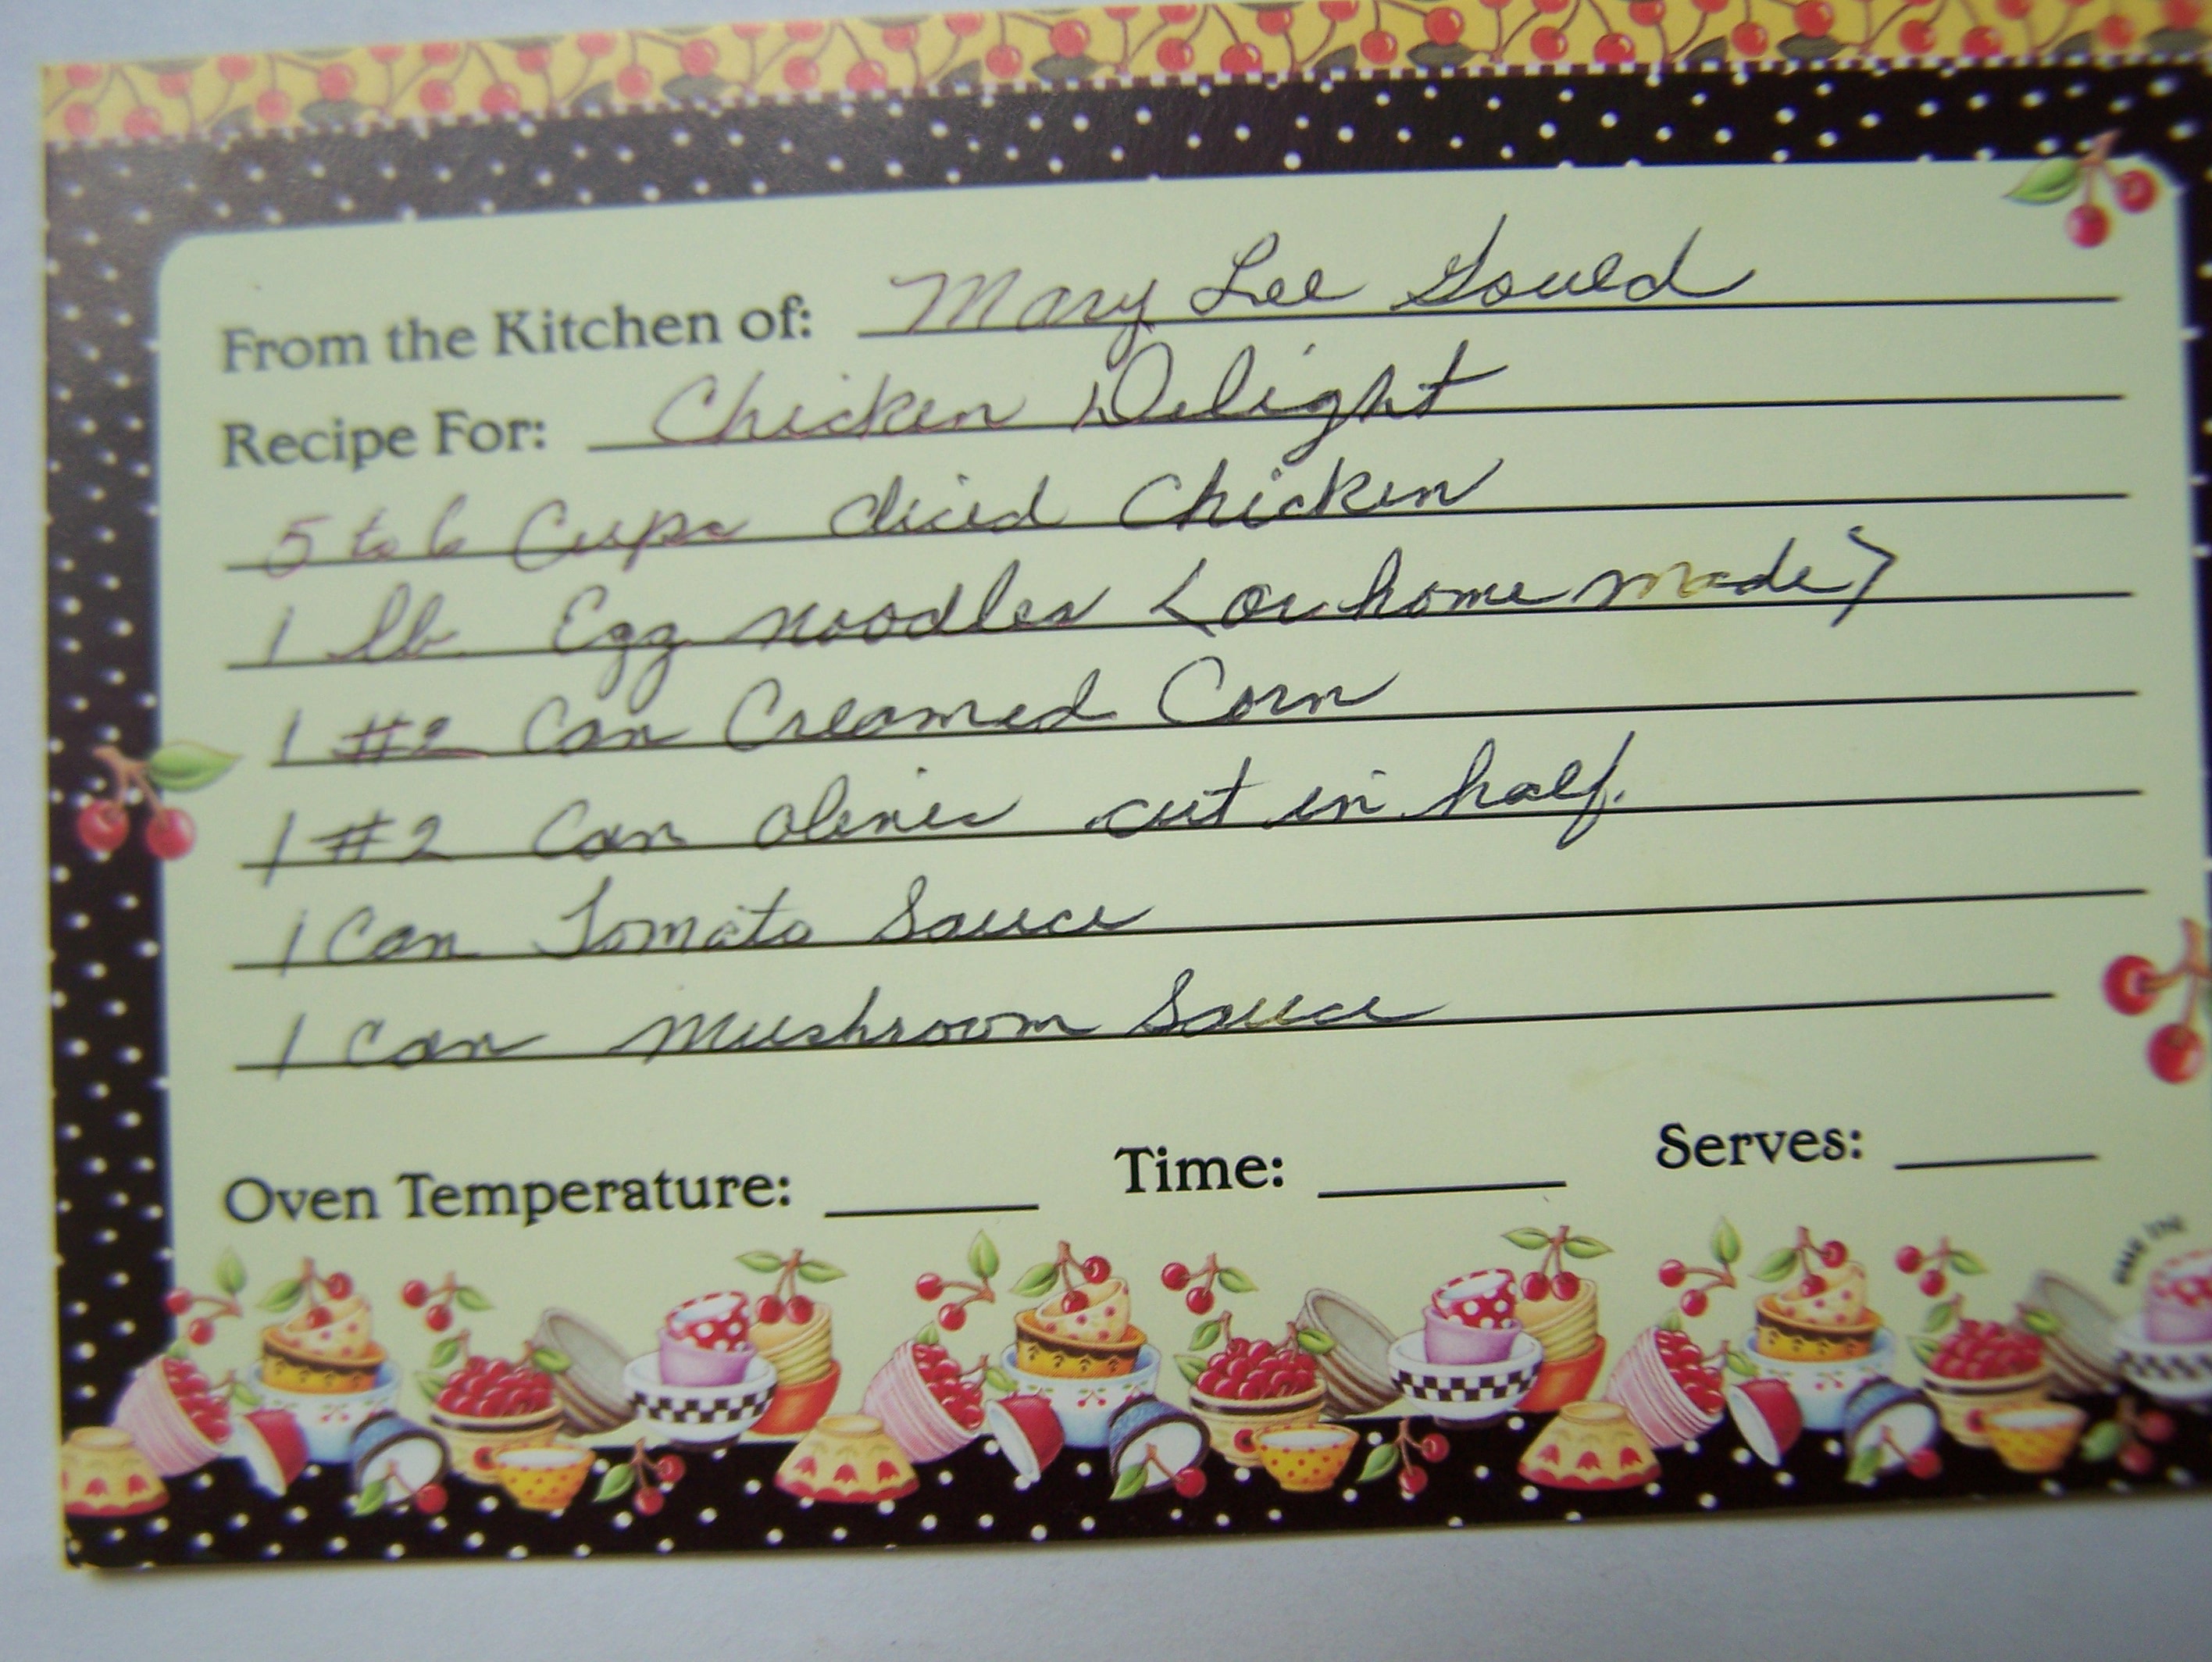 From the Kitchen of: Mary Lee Gould
Recipe For: Chicken Delight
5 to 6 Cups diced Chicken
1 lb Egg noodles <or home made>
1 #2 Can Creamed Corn
1 #2 Can olives cut in half.
1 Can Tomato Sauce
1 Can Mushroom Sauce
Oven Temperature: Time: Serves: